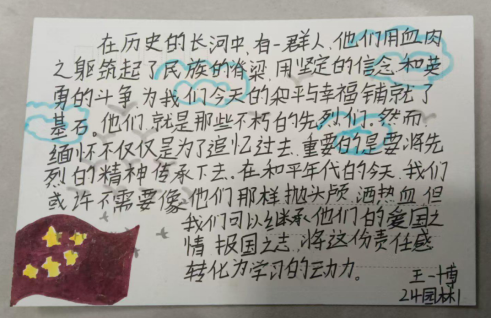 在历史的长河中,有一群人,他们用血肉
之躯筑起了民族的脊梁,用坚定的信念和英
勇的斗争为我们今天的和平与幸福铺就了
基石。他们就是那些不朽的先烈们。然而
缅怀不仅仅是为了追忆过去,重要的是要将先
烈的精神传承下去。在和平年代的今天,我们
或许不需要像他们那样抛头颅,洒热血,但
我们可以继承他们的爱国之
情,报国之志,将这份责任感
转化为学习的动力。
王一博
24园林1